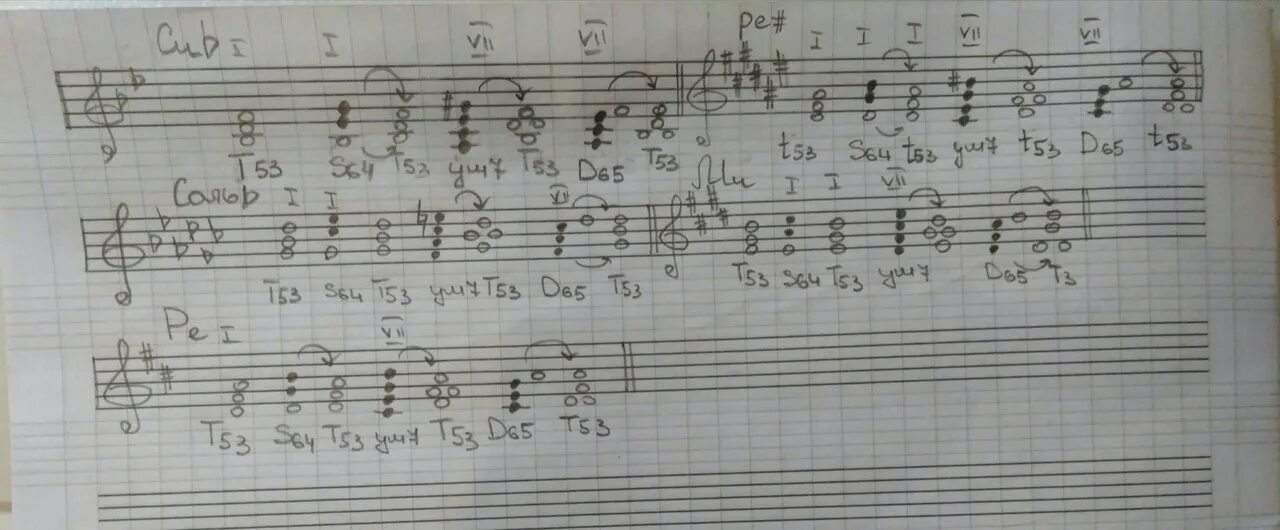 Сиb I I VII VII
T53 S64 T53 ум7 T53 D65 T53
ре# I I I VII VII
t53 S64 t53 ум7 t53 D65 t53
Сольb I I VII
T53 S64 T53 ум7 T53 D65 T53
Ми I I VII
T53 S64 T53 ум7 D65 T3
Ре I VII
T53 S64 T53 ум7 T53 D65 T53